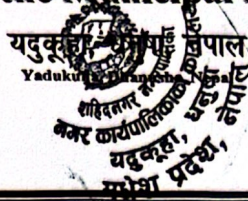 यदुकूहा, धनुषा, नेपाल
Yadukuha, Dhanusha, Nepal
शहिदनगर नगरपालिका
नगर कार्यपालिकाको कार्यालय
यदुकूहा, धनुषा
प्रदेश, नेपाल